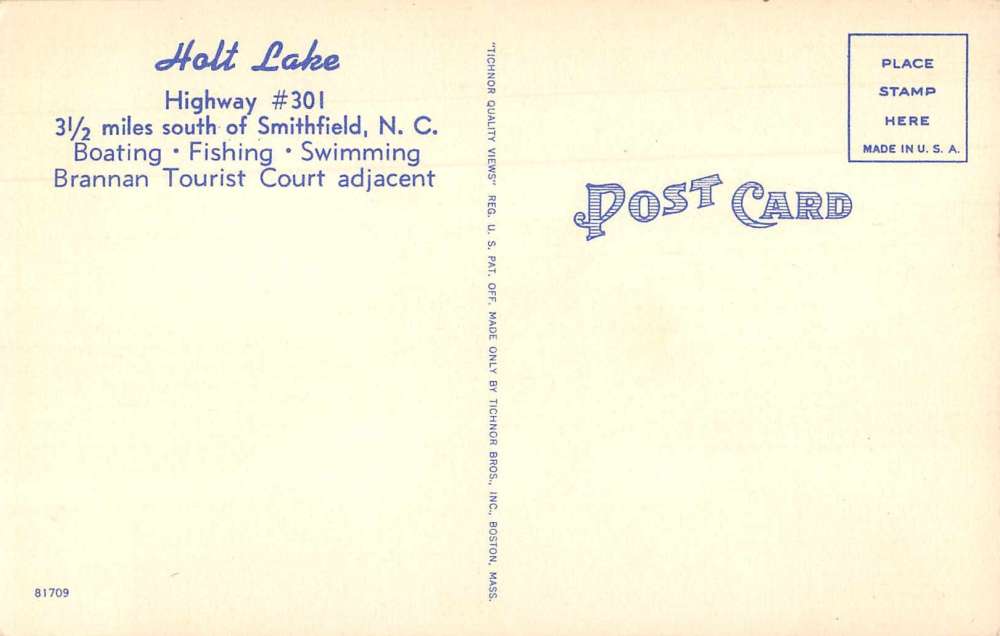 Holt Lake
Highway #301
3½ miles south of Smithfield, N. C.
Boating · Fishing · Swimming
Brannan Tourist Court adjacent
81709
"TICHNOR QUALITY VIEWS" REG. U. S. PAT. OFF. MADE ONLY BY TICHNOR BROS., INC., BOSTON, MASS.
POST CARD
PLACE
STAMP
HERE
MADE IN U. S. A.